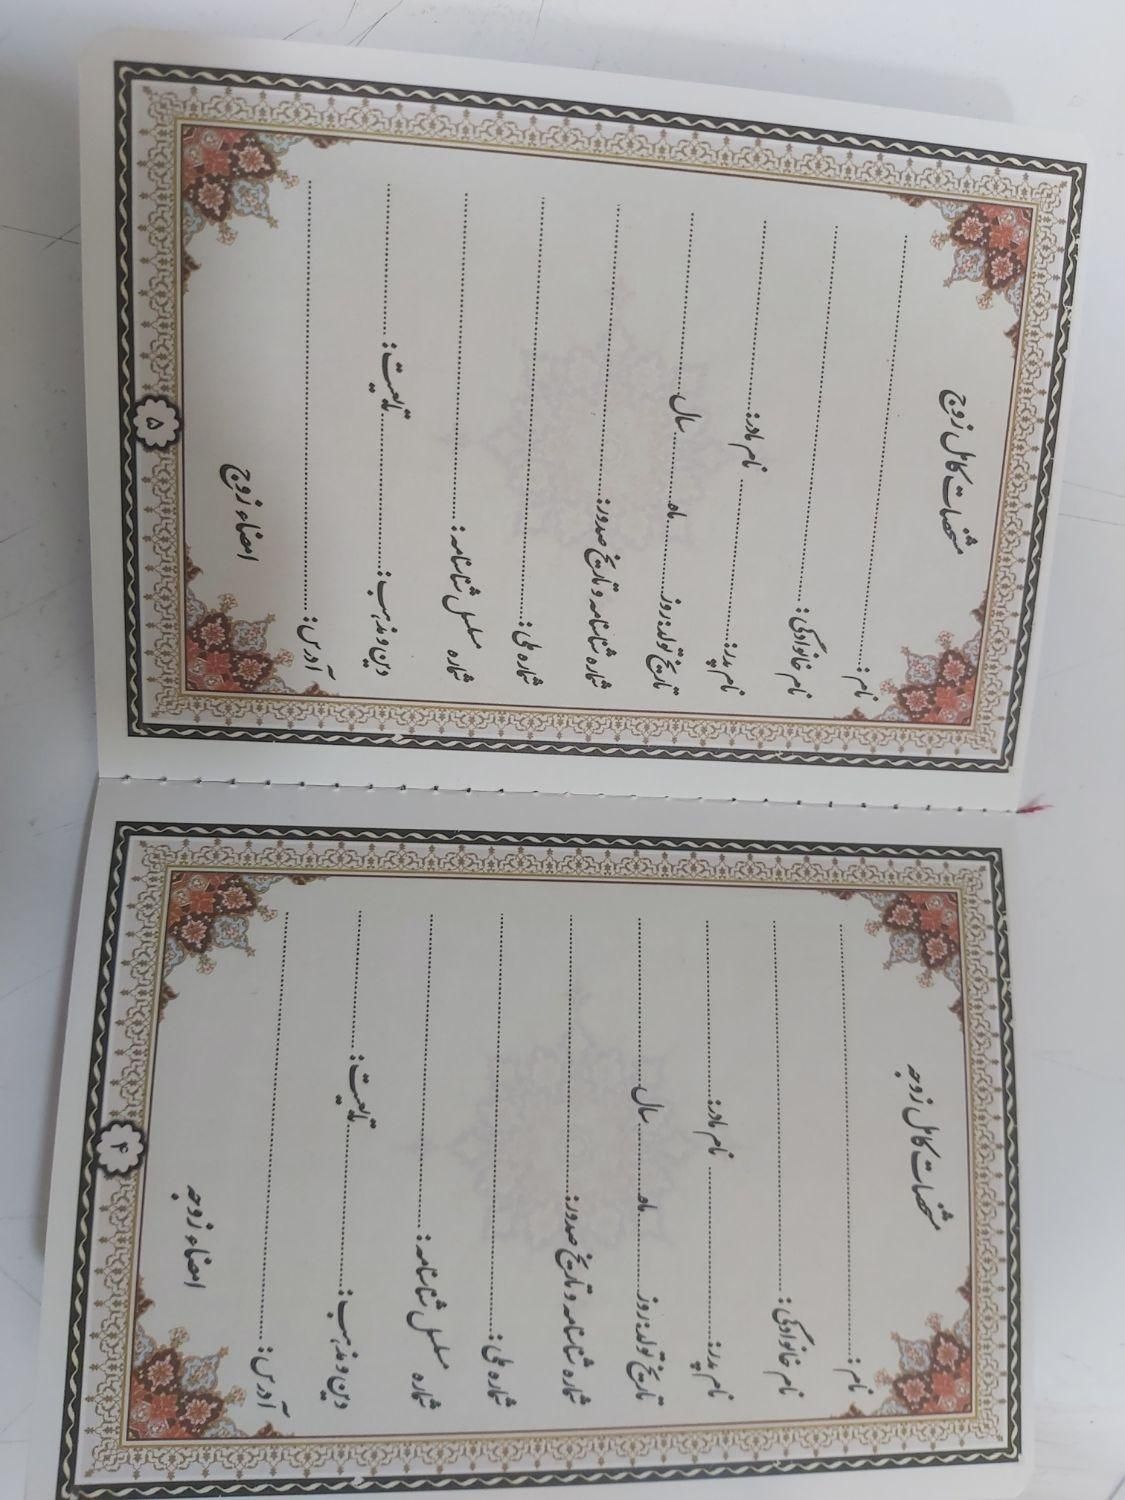 مشخصات کامل زوج
نام:
نام خانوادگی:
نام پدر: نام مادر:
تاریخ تولد: روز ماه سال
شماره شناسنامه و تاریخ صدور:
شماره ملی:
شماره مسلسل شناسنامه:
دین و مذهب: تابعیت:
آدرس:
امضاء زوج
۵
مشخصات کامل زوجه
نام:
نام خانوادگی:
نام پدر: نام مادر:
تاریخ تولد: روز ماه سال
شماره شناسنامه و تاریخ صدور:
شماره ملی:
شماره مسلسل شناسنامه:
دین و مذهب: تابعیت:
آدرس:
امضاء زوجه
۴